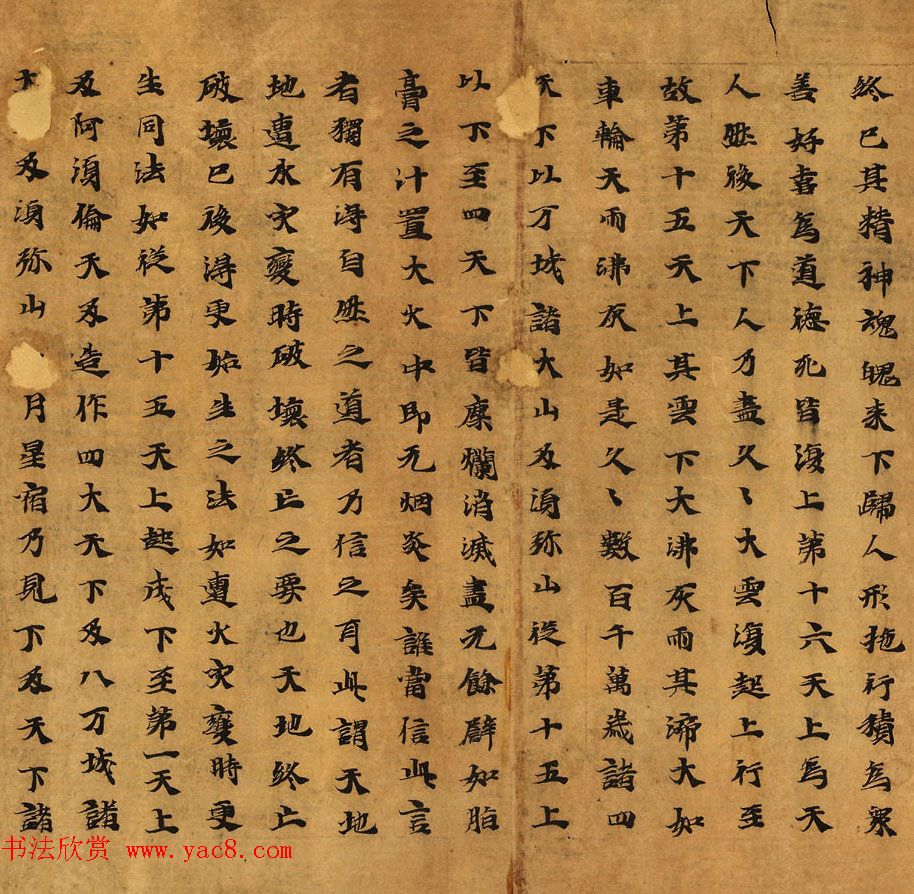 终已其精神魂魄来下歸人形拖行積為眾
善好喜為道德死皆復上第十六天上為天
人然後天下人乃盡久〻大雲復起上行至
故第十五天上其雲下大沸灰雨其渧大如
車輪天雨沸灰如是久〻數百千萬歲諸四
天下以万城諸大山及湏弥山從第十五上
以下至四天下皆麋爛消滅盡无餘辟如脂
膏之汁置大火中即无烟炎矣誰當信此言
者獨有得自然之道者乃信之耳此謂天地
地遭水灾變時破壞終亡之要也天地終亡
破壞已後得更始生之法如遭火灾變時更
生同法如從第十五天上起成下至第一天上
及阿湏倫天及造作四大天下及八万城諸
大 及湏弥山 月星宿乃見下及天下諸
书法欣赏 www.yac8.com